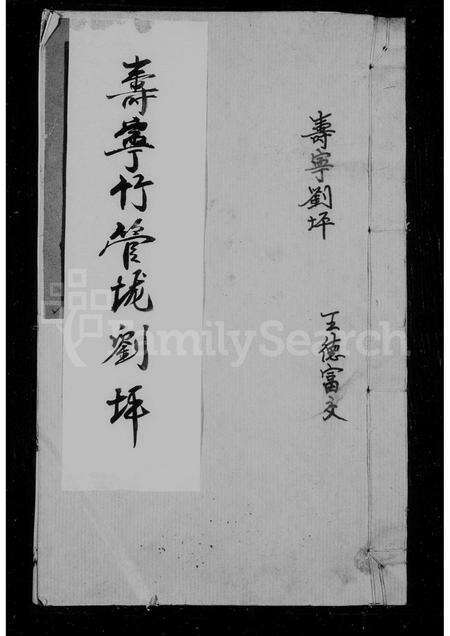 壽寧劉坪
王德富文
壽寧竹管垅劉坪
FamilySearch